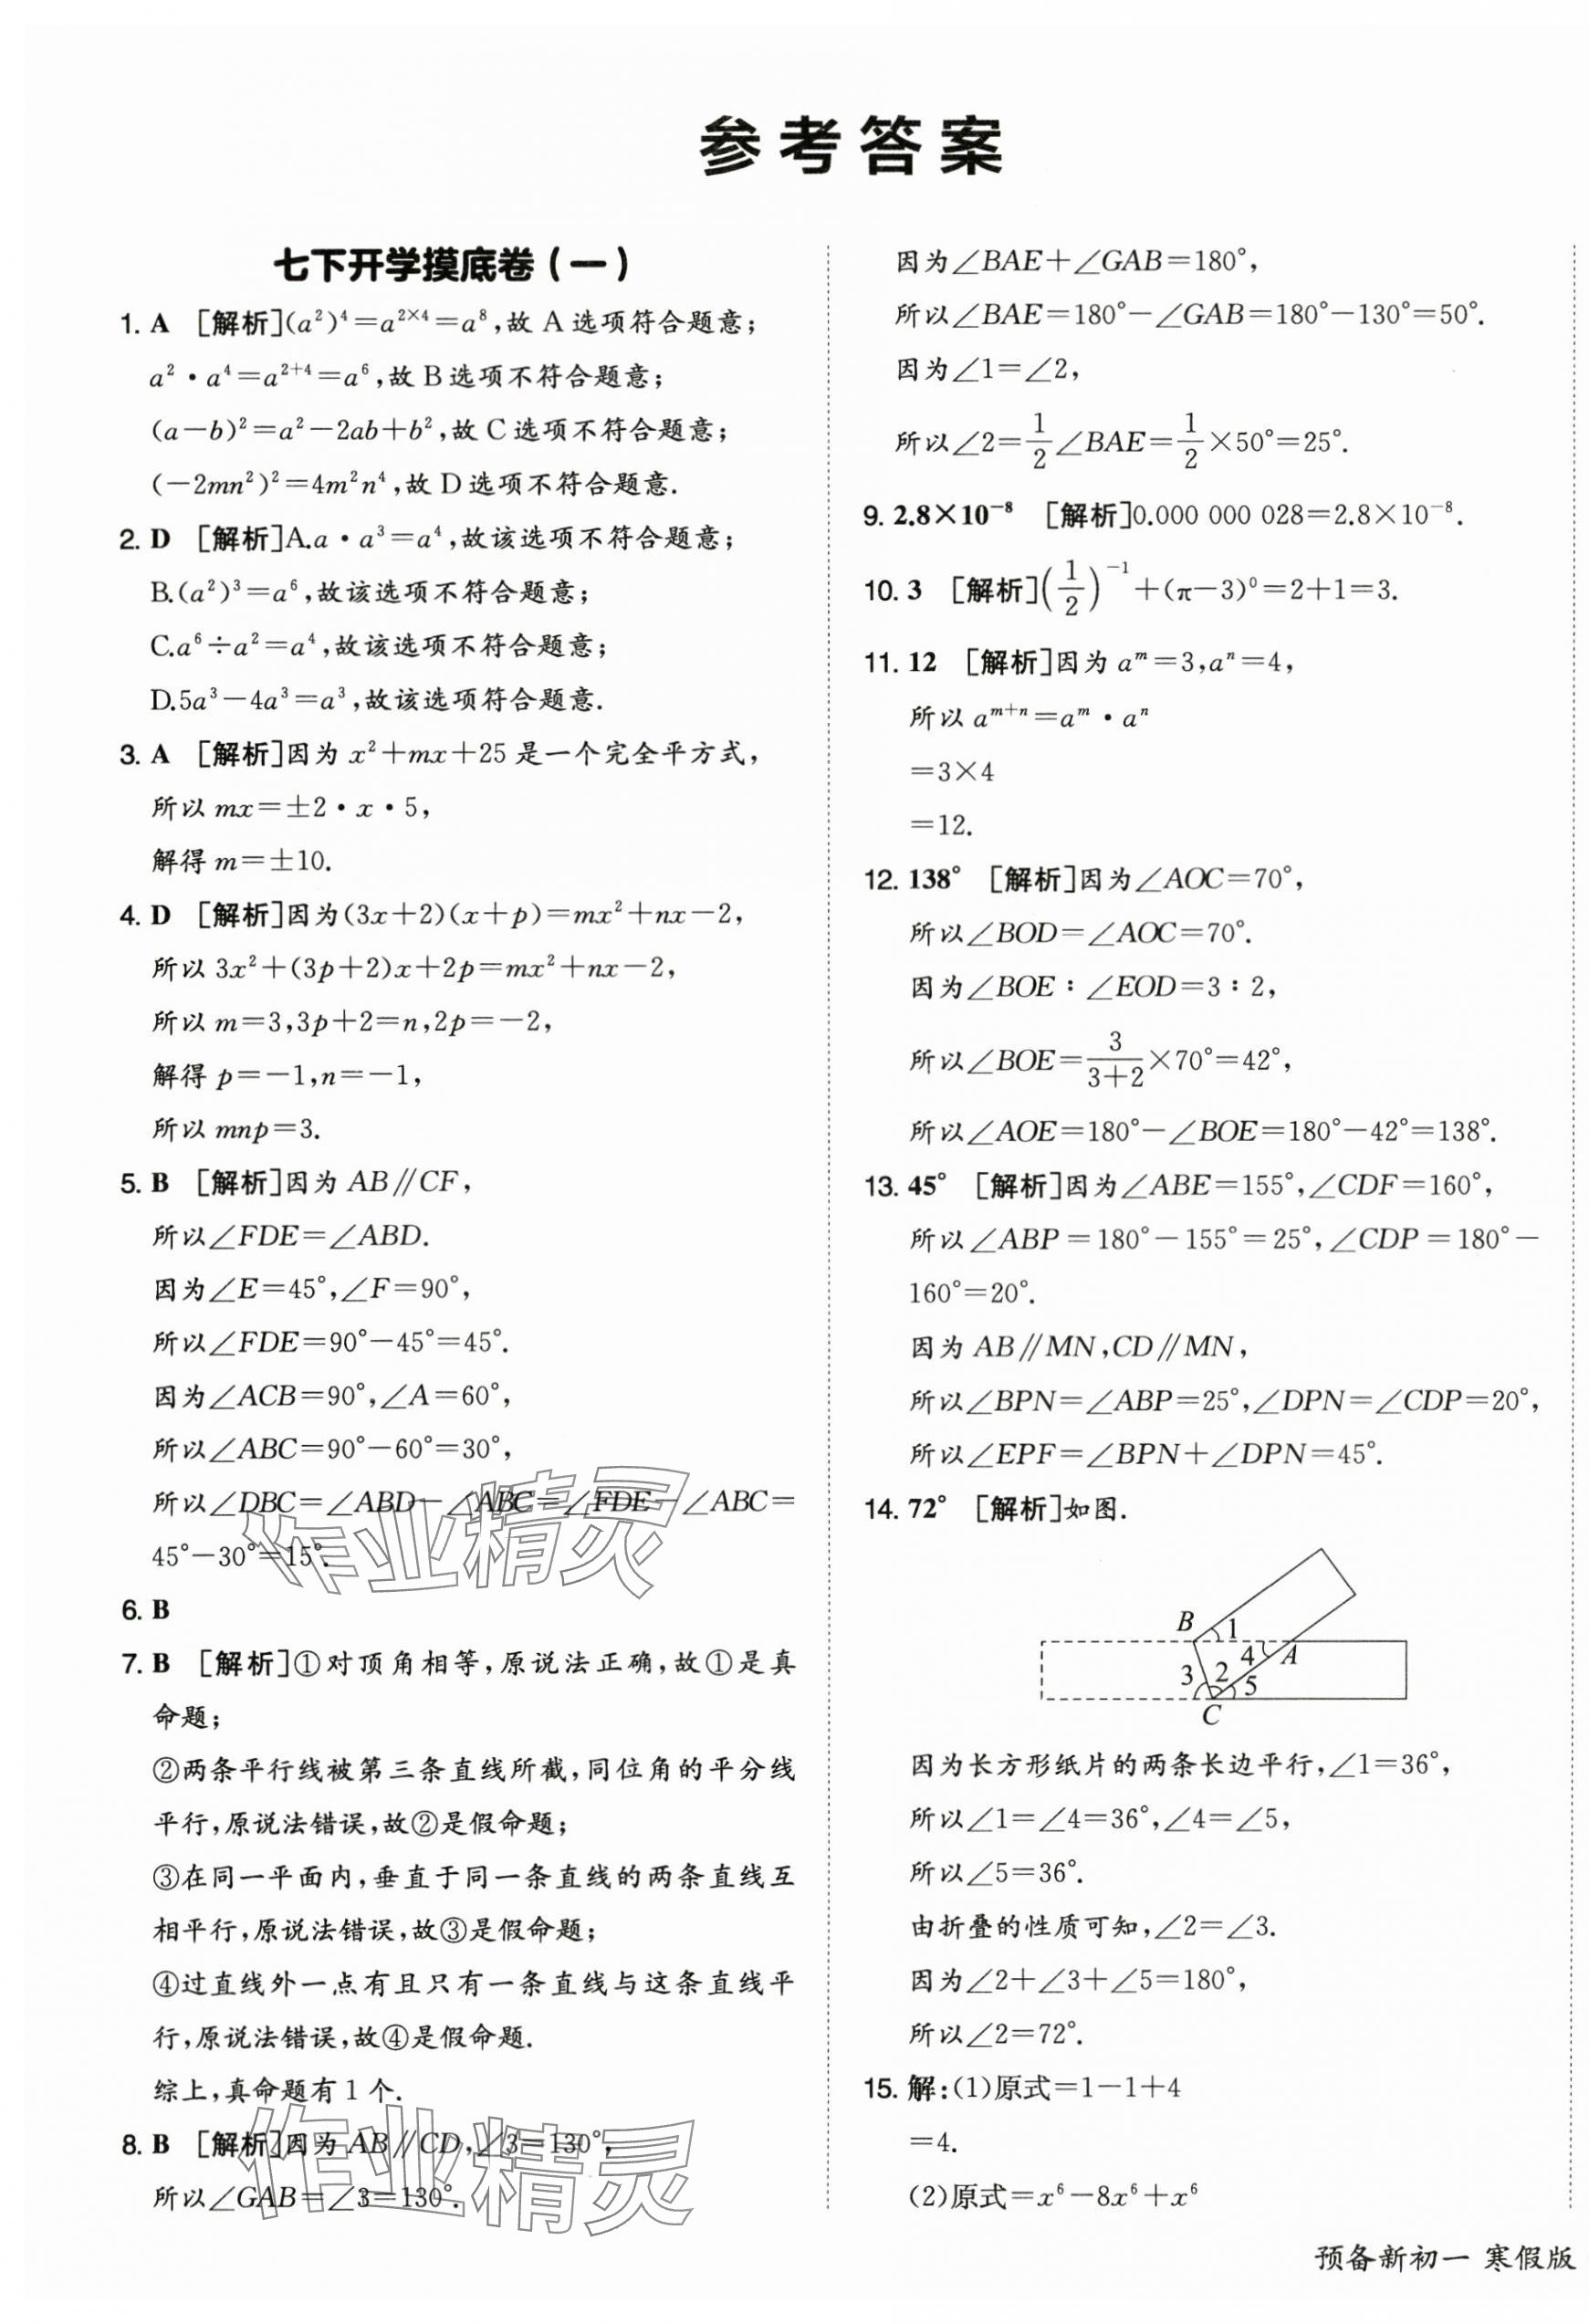 参考答案
七下开学摸底卷(一)
1. A [解析](a²)⁴=a²ˣ⁴=a⁸,故 A 选项符合题意;
a²·a⁴=a²⁺⁴=a⁶,故 B 选项不符合题意;
(a-b)²=a²-2ab+b²,故 C 选项不符合题意;
(-2mn²)²=4m²n⁴,故 D 选项不符合题意.
2. D [解析]A.a·a³=a⁴,故该选项不符合题意;
B.(a²)³=a⁶,故该选项不符合题意;
C.a⁶÷a²=a⁴,故该选项不符合题意;
D.5a³-4a³=a³,故该选项符合题意.
3. A [解析]因为 x²+mx+25 是一个完全平方式,
所以 mx=±2·x·5,
解得 m=±10.
4. D [解析]因为(3x+2)(x+p)=mx²+nx-2,
所以 3x²+(3p+2)x+2p=mx²+nx-2,
所以 m=3,3p+2=n,2p=-2,
解得 p=-1,n=-1,
所以 mnp=3.
5. B [解析]因为 AB∥CF,
所以∠FDE=∠ABD.
因为∠E=45°,∠F=90°,
所以∠FDE=90°-45°=45°.
因为∠ACB=90°,∠A=60°,
所以∠ABC=90°-60°=30°,
所以∠DBC=∠ABD-∠ABC=∠FDE-∠ABC=
45°-30°=15°.
作业精灵
6. B
7. B [解析]①对顶角相等,原说法正确,故①是真
命题;
②两条平行线被第三条直线所截,同位角的平分线
平行,原说法错误,故②是假命题;
③在同一平面内,垂直于同一条直线的两条直线互
相平行,原说法错误,故③是假命题;
④过直线外一点有且只有一条直线与这条直线平
行,原说法错误,故④是假命题.
综上,真命题有 1 个.
8. B [解析]因为 AB∥CD,∠3=130°,
所以∠GAB=∠3=130°.
作业精灵
因为∠BAE+∠GAB=180°,
所以∠BAE=180°-∠GAB=180°-130°=50°.
因为∠1=∠2,
所以∠2=1/2∠BAE=1/2×50°=25°.
9. 2.8×10⁻⁸ [解析]0.000 000 028=2.8×10⁻⁸.
10. 3 [解析](1/2)⁻¹+(π-3)⁰=2+1=3.
11. 12 [解析]因为 aᵐ=3,aⁿ=4,
所以 aᵐ⁺ⁿ=aᵐ·aⁿ
=3×4
=12.
12. 138° [解析]因为∠AOC=70°,
所以∠BOD=∠AOC=70°.
因为∠BOE:∠EOD=3:2,
所以∠BOE=3/(3+2)×70°=42°,
所以∠AOE=180°-∠BOE=180°-42°=138°.
13. 45° [解析]因为∠ABE=155°,∠CDF=160°,
所以∠ABP=180°-155°=25°,∠CDP=180°-
160°=20°.
因为 AB∥MN,CD∥MN,
所以∠BPN=∠ABP=25°,∠DPN=∠CDP=20°,
所以∠EPF=∠BPN+∠DPN=45°.
14. 72° [解析]如图.
B 1
4 A
3 2 5
C
因为长方形纸片的两条长边平行,∠1=36°,
所以∠1=∠4=36°,∠4=∠5,
所以∠5=36°.
由折叠的性质可知,∠2=∠3.
因为∠2+∠3+∠5=180°,
所以∠2=72°.
15. 解:(1)原式=1-1+4
=4.
(2)原式=x⁶-8x⁶+x⁶
预备新初一 寒假版